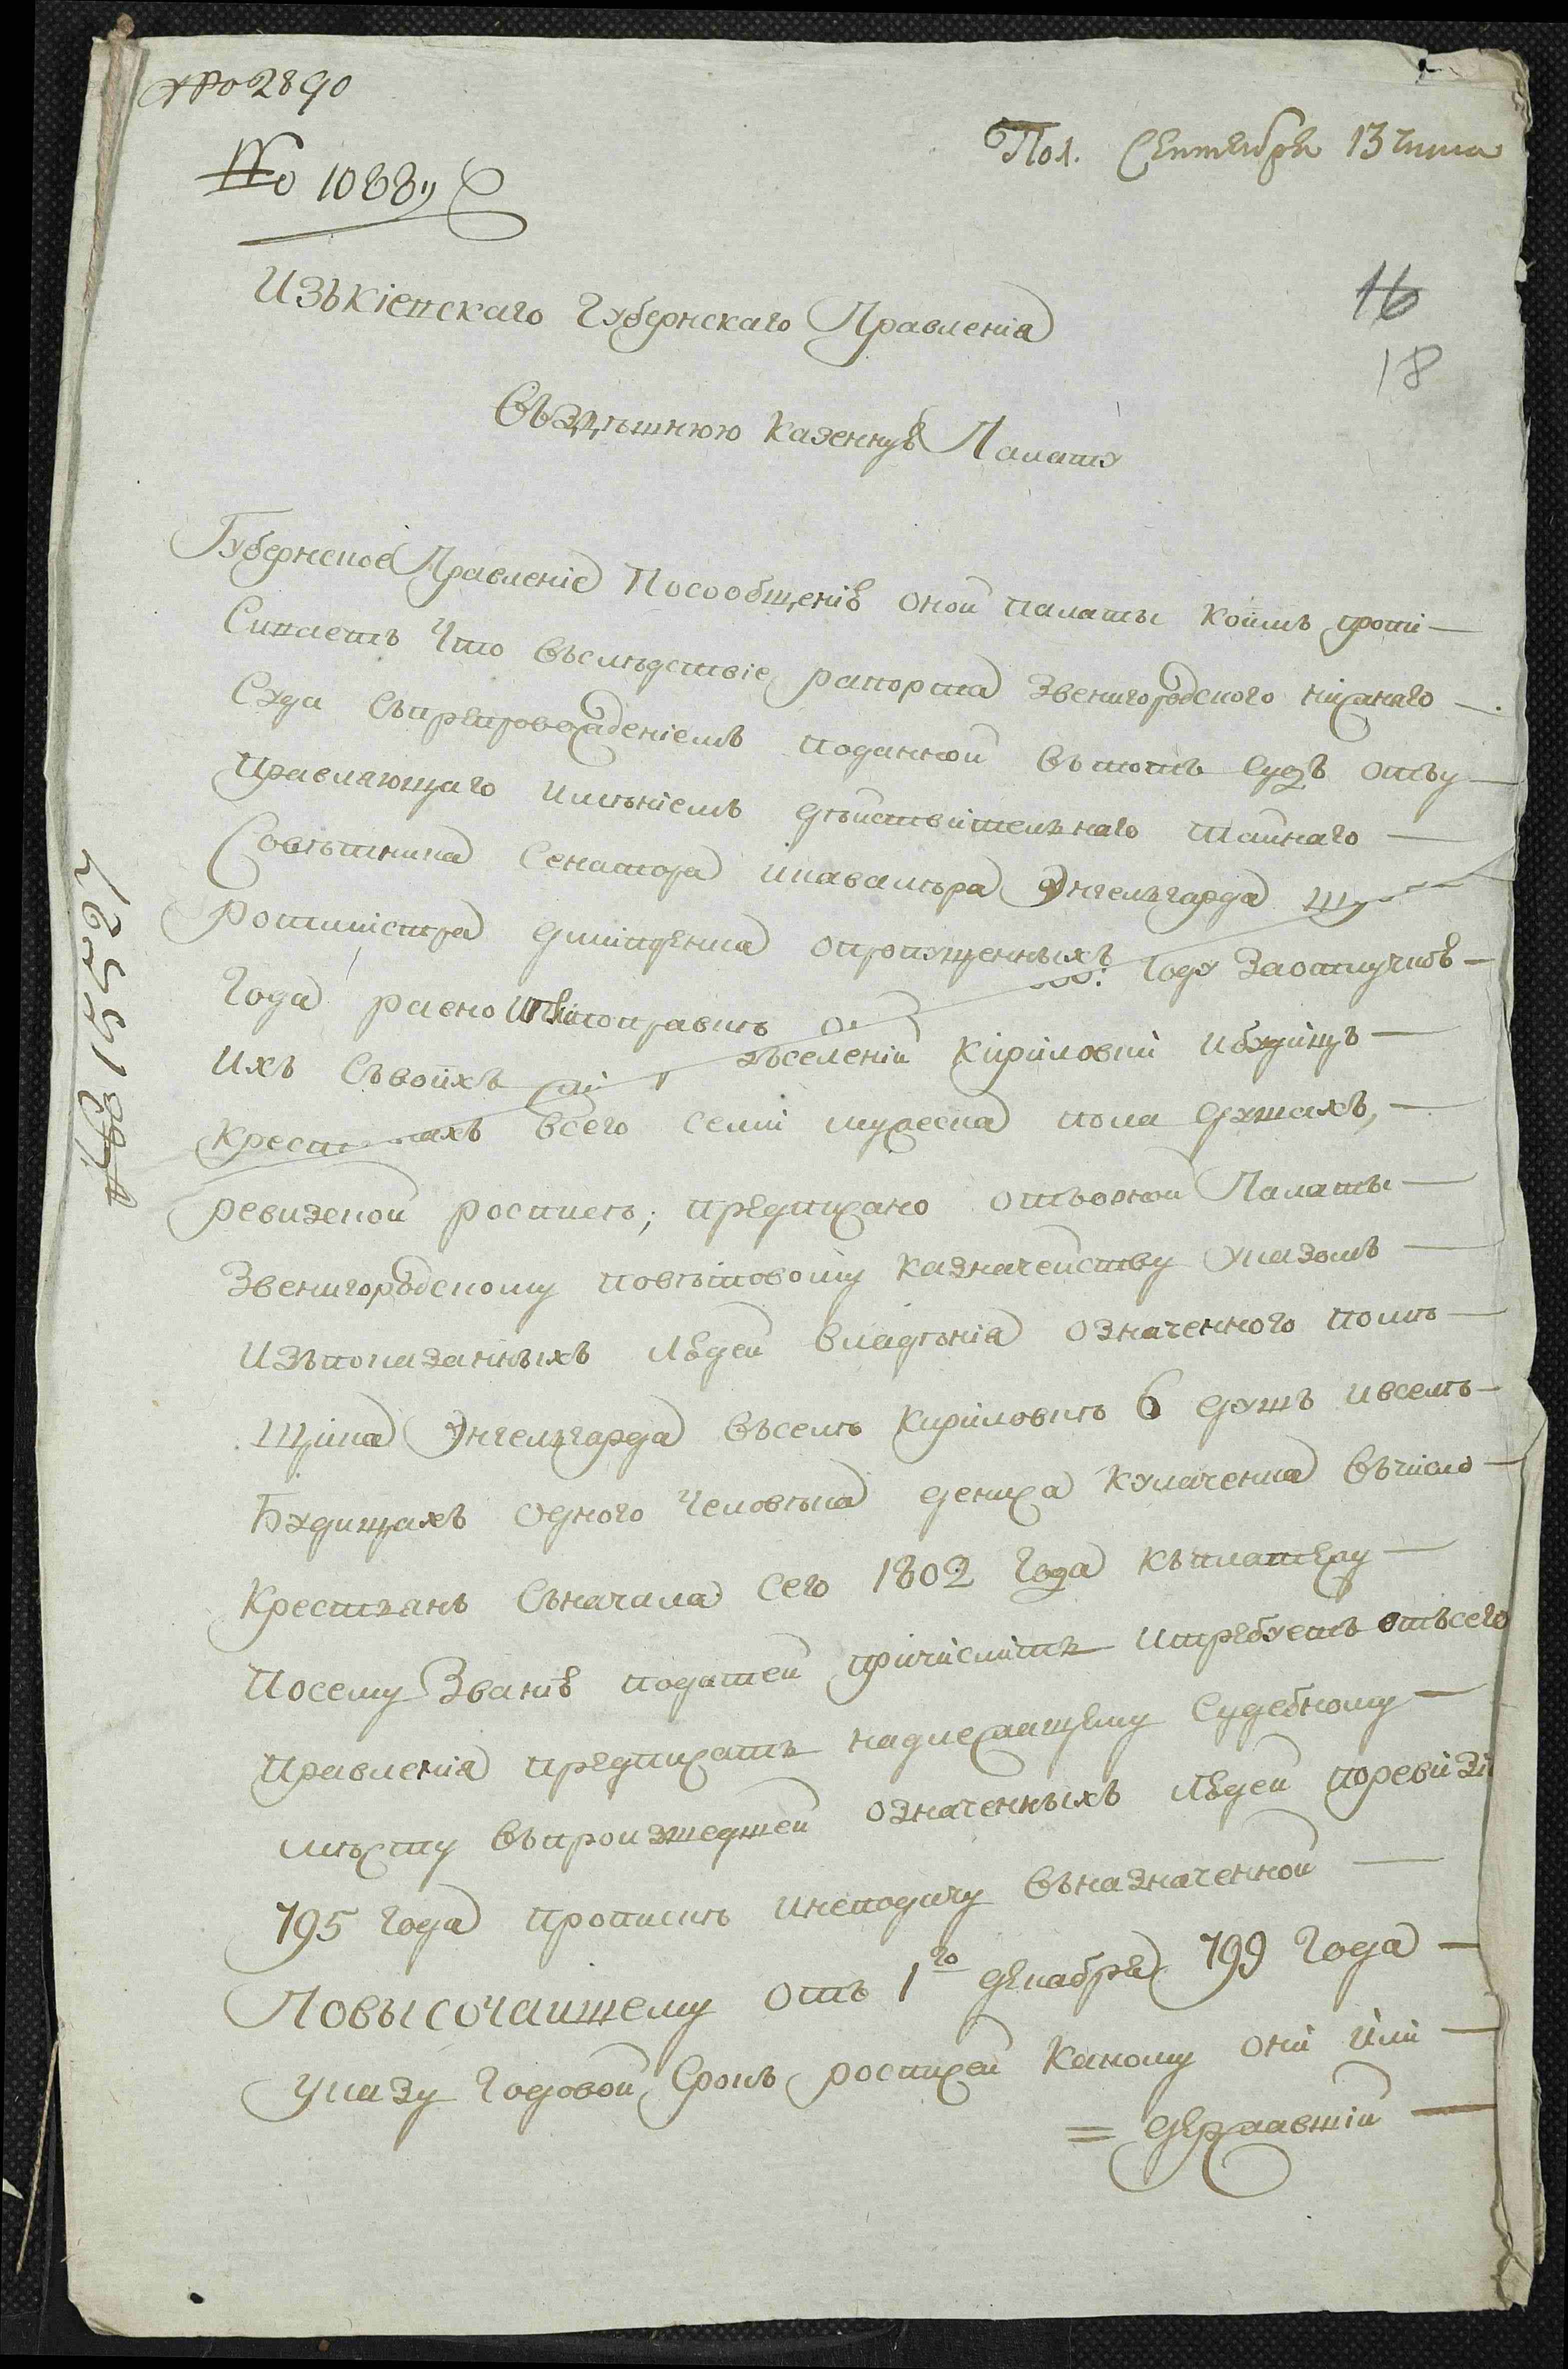 2890
№ 10889
Пол. Сентября 13 числа
16
18
Изъ кіевскаго Губернскаго Правленія
Въ здѣшнюю казенную Палату
Губернское Правленіе По сообщенію оной палаты коимъ пропи-
Сываетъ Что въ слѣдствіе рапорта Звенигородского нижняго
Суда Съ препровожденіемъ поданной въ тотъ Судъ отъ у-
правляющаго имѣніемъ дѣйствительнаго тайнаго
Совѣтника Сенатора и кавалера Энгельгарда
ротмистра о пропущенныхъ Году За отлучкою
Года равно
Ихъ Съ въ селеніи Кириловки и будищъ
Крест ахъ всего семи мужеска пола душахъ,
ревизской росписѣ; предписано отъ оной Палаты
Звенигородскому повѣтовому казначейству Указомъ
Изъ показанныхъ людей владѣнія означенного помѣ-
щика Энгельгарда въ селѣ Кириловкѣ 6 душъ и в селѣ
Будищахъ одного Человѣка дениса въ число
Крестьянъ Съ начала сего 1802 Года къ платежу
По сему Званію податей причислить и требуетъ отъ сего
правленія предписать надлежащему Судебному
мѣсту въ произшедшей означенныхъ людей по ревизіи
795 года прописки и не подачу въ назначенной
По высочайшему отъ 1го декабря 799 Года
указу годовой Срокъ росписей какому они или
= державшіи
№ 15527